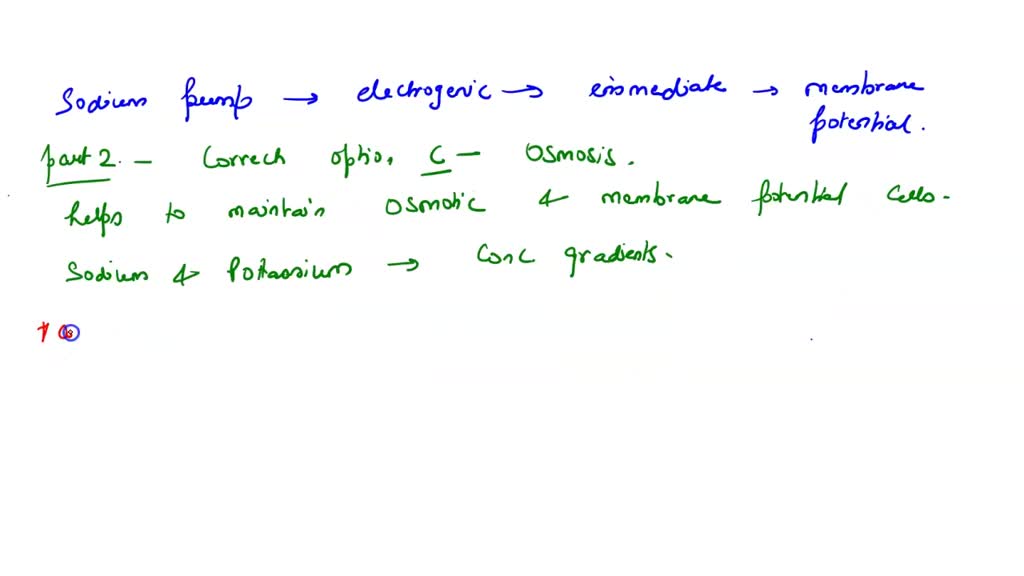 Sodium pump → electrogenic → immediate → membrane
potential.
part 2. - Correch optio. C - Osmosis.
helps to maintain osmotic & membrane potential cells.
Sodium & Potassium → Conc gradients.